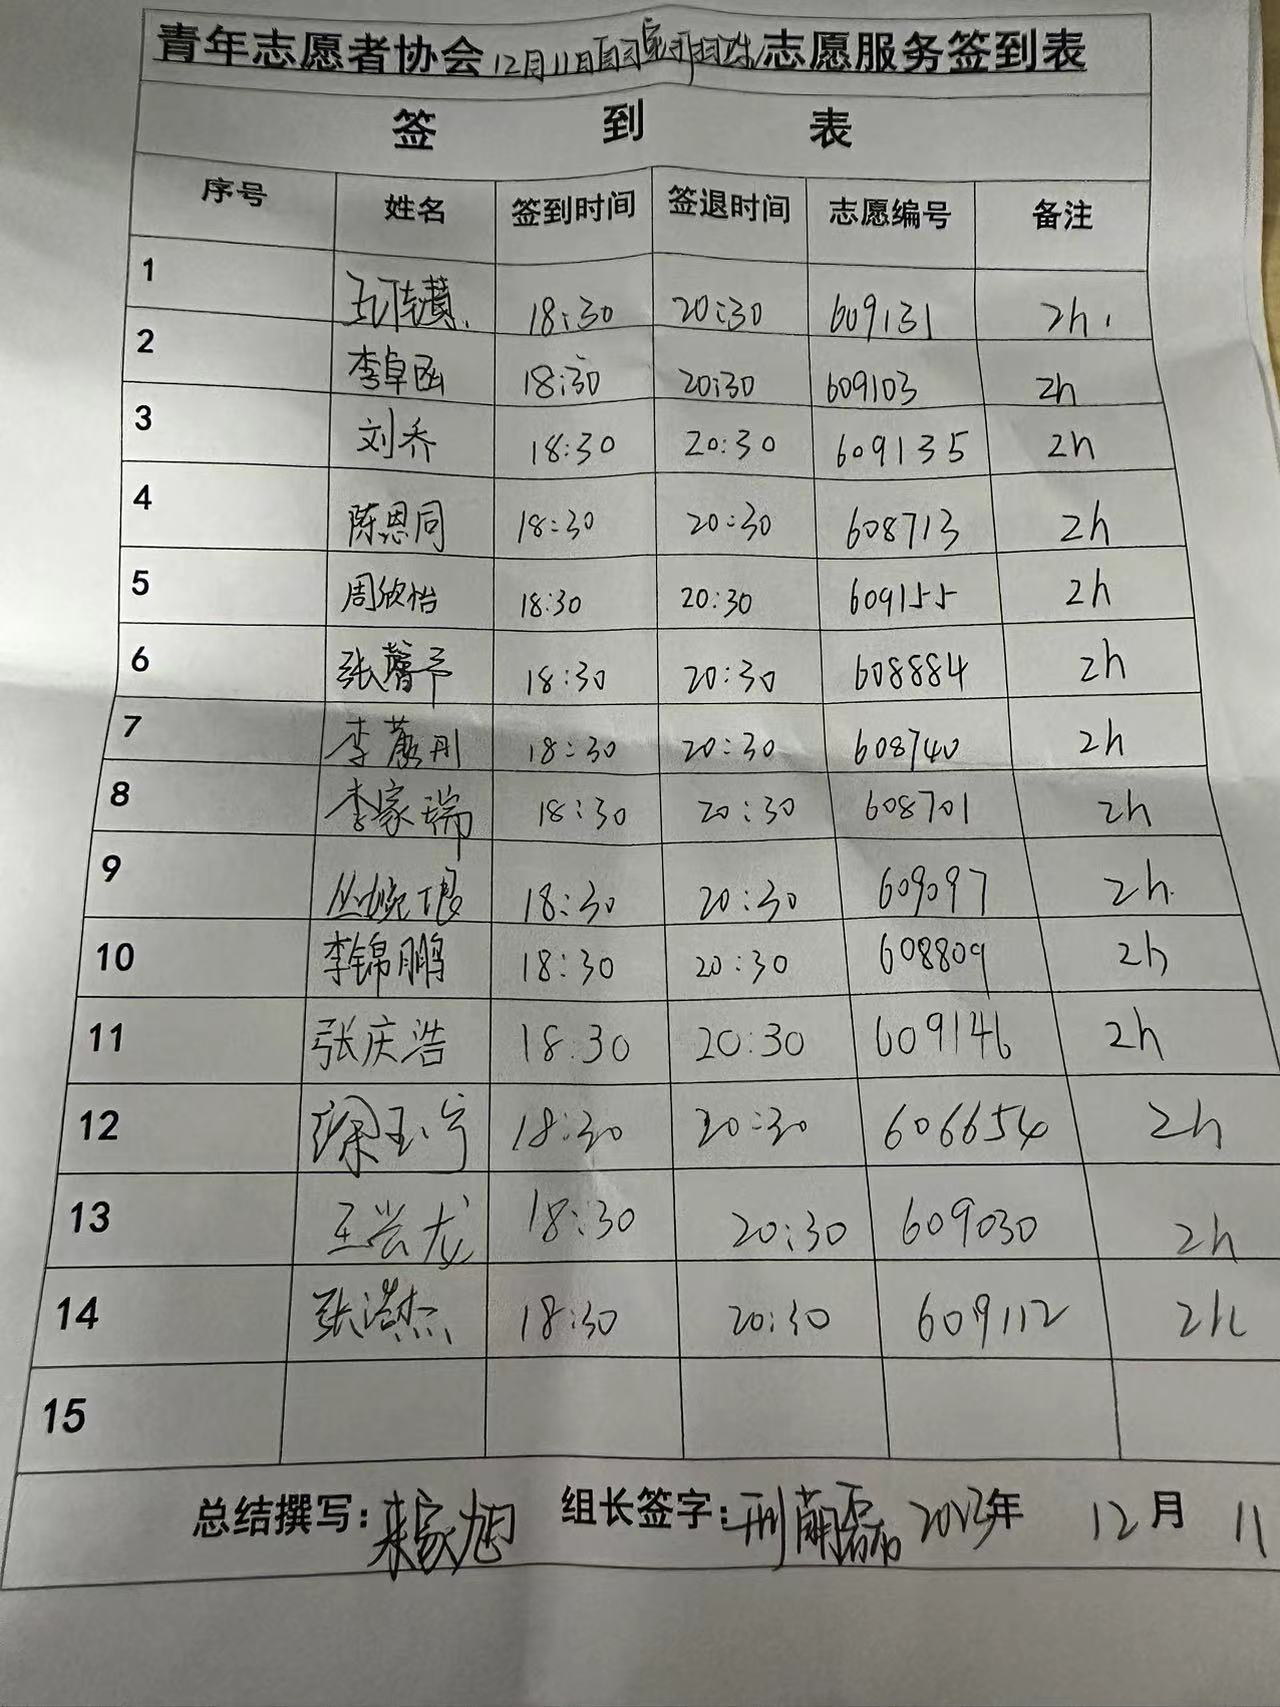 青年志愿者协会12月11日志愿服务签到表
签 到 表
序号 姓名 签到时间 签退时间 志愿编号 备注
1 18:30 20:30 609131 2h
2 李卓函 18:30 20:30 609103 2h
3 刘乔 18:30 20:30 609135 2h
4 陈恩同 18:30 20:30 608713 2h
5 周欣怡 18:30 20:30 609155 2h
6 张馨予 18:30 20:30 608884 2h
7 李 18:30 20:30 608740 2h
8 李家瑞 18:30 20:30 608701 2h
9 丛婉 18:30 20:30 609097 2h
10 李锦鹏 18:30 20:30 608809 2h
11 张庆浩 18:30 20:30 609146 2h
12 徐玉 18:30 20:30 606654 2h
13 王兴龙 18:30 20:30 609030 2h
14 张浩杰 18:30 20:30 609112 2h
15
总结撰写：来家旭 组长签字：邢萌磊 2023年 12月 11